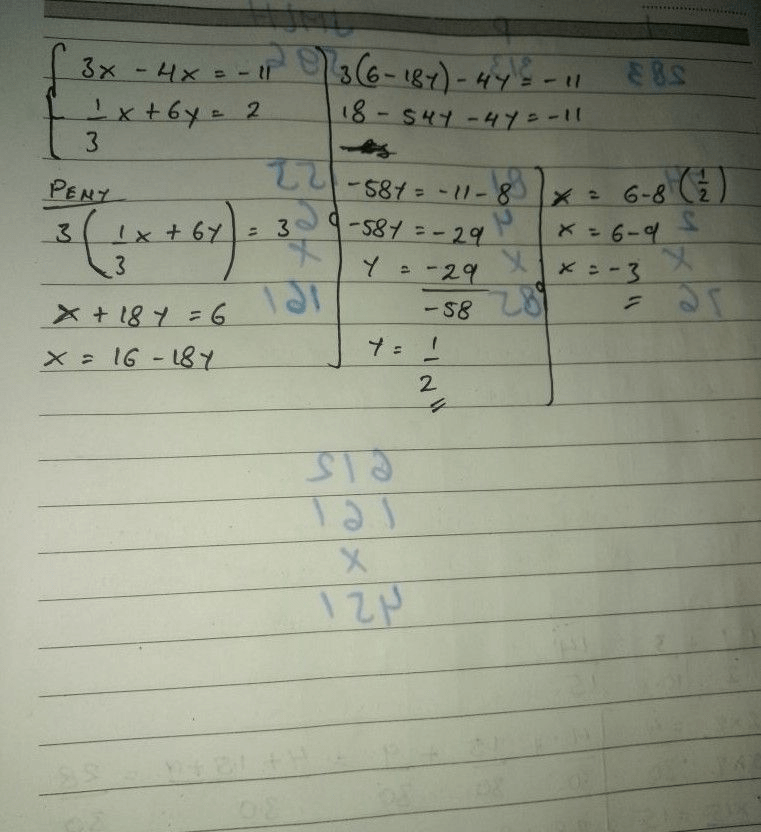 3x - 4x = -11
1/3 x + 6y = 2
PENY
3(1/3 x + 6y) = 3
x + 18y = 6
x = 16 - 18y
3(6 - 18y) - 4y = -11
18 - 54y - 4y = -11
-58y = -11 - 8
-58y = -29
y = -29/-58
y = 1/2
x = 6-8(1/2)
x = 6-9
x = -3